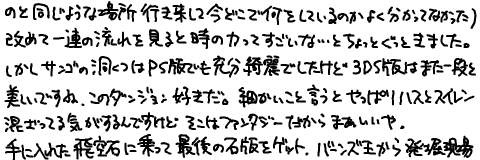 のと同じような場所行き来して今どこで何をしているのかよく分かってなかった)
改めて一連の流れを見ると時の力ってすごいな…とちょっとぐっときました。
しかしサンゴの洞くつはPS版でも充分綺麗でしたけど3DS版はまた一段と
美しいですね、このダンジョン好きだ。細かいこと言うとやっぱりハスとスイレン
混ざってる気がするんですけど そこはファンタジーだからまぁいいや。
手に入れた飛空石に乗って最後の石版をゲット、バーンズ王から発掘現場